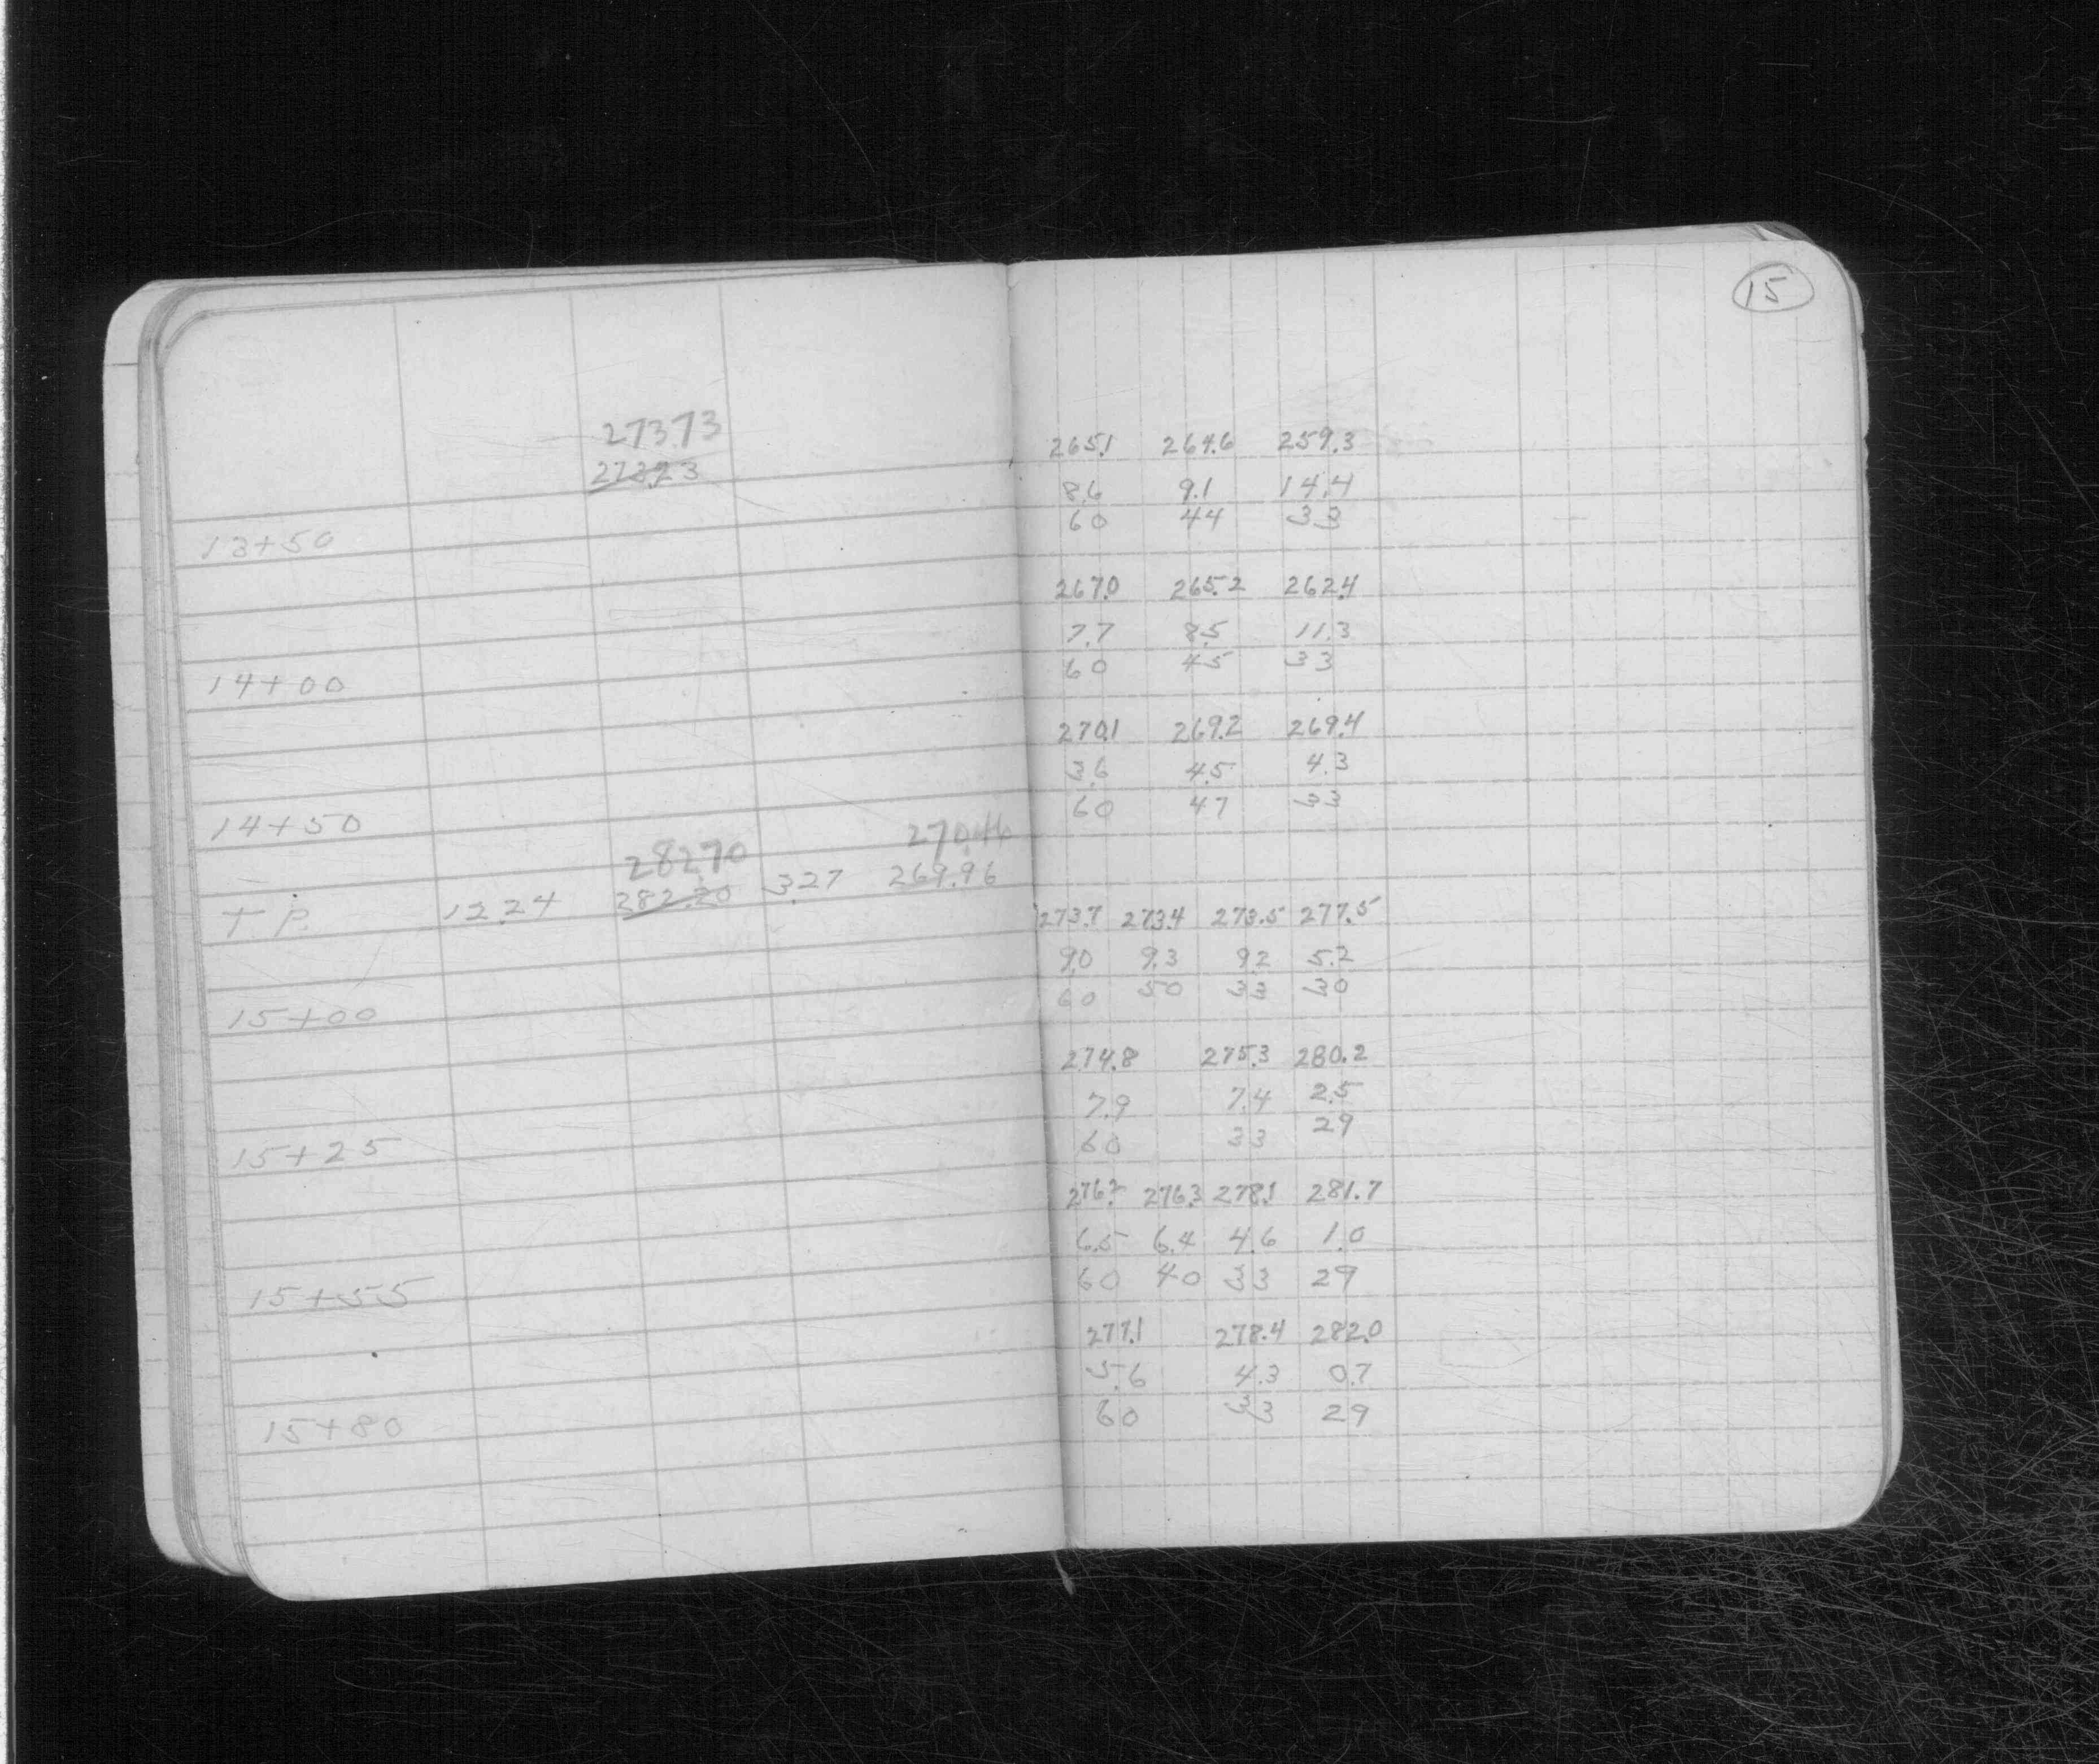 15
273.73
273.23
265.1 264.6 259.3
8.6 9.1 14.4
13+50 60 44 33
267.0 265.2 262.4
7.7 8.5 11.3
14+00 60 45 33
270.1 269.2 269.4
3.6 4.5 4.3
14+50 60 47 33
282.70 270.46
T.P. 12.24 282.20 3.27 269.96
273.7 273.4 273.5 277.5
9.0 9.3 9.2 5.2
15+00 60 50 33 30
274.8 275.3 280.2
7.9 7.4 2.5
15+25 60 33 29
276.2 276.3 278.1 281.7
6.5 6.4 4.6 1.0
15+55 60 40 33 29
277.1 278.4 282.0
5.6 4.3 0.7
15+80 60 33 29